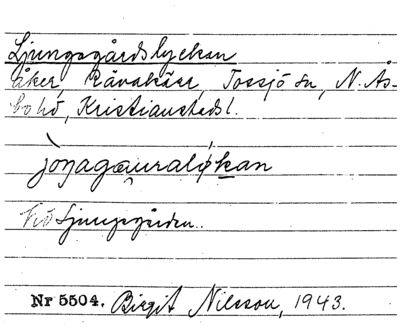 Ljungagårdslyckan
åker, Rävakärr, Tossjö sn, N. Ås-
bo hd, Kristianstads l.
jơŋagæ̨uralykan
Vid Ljungagården.
Nr 5504. Birgit Nilsson, 1943.